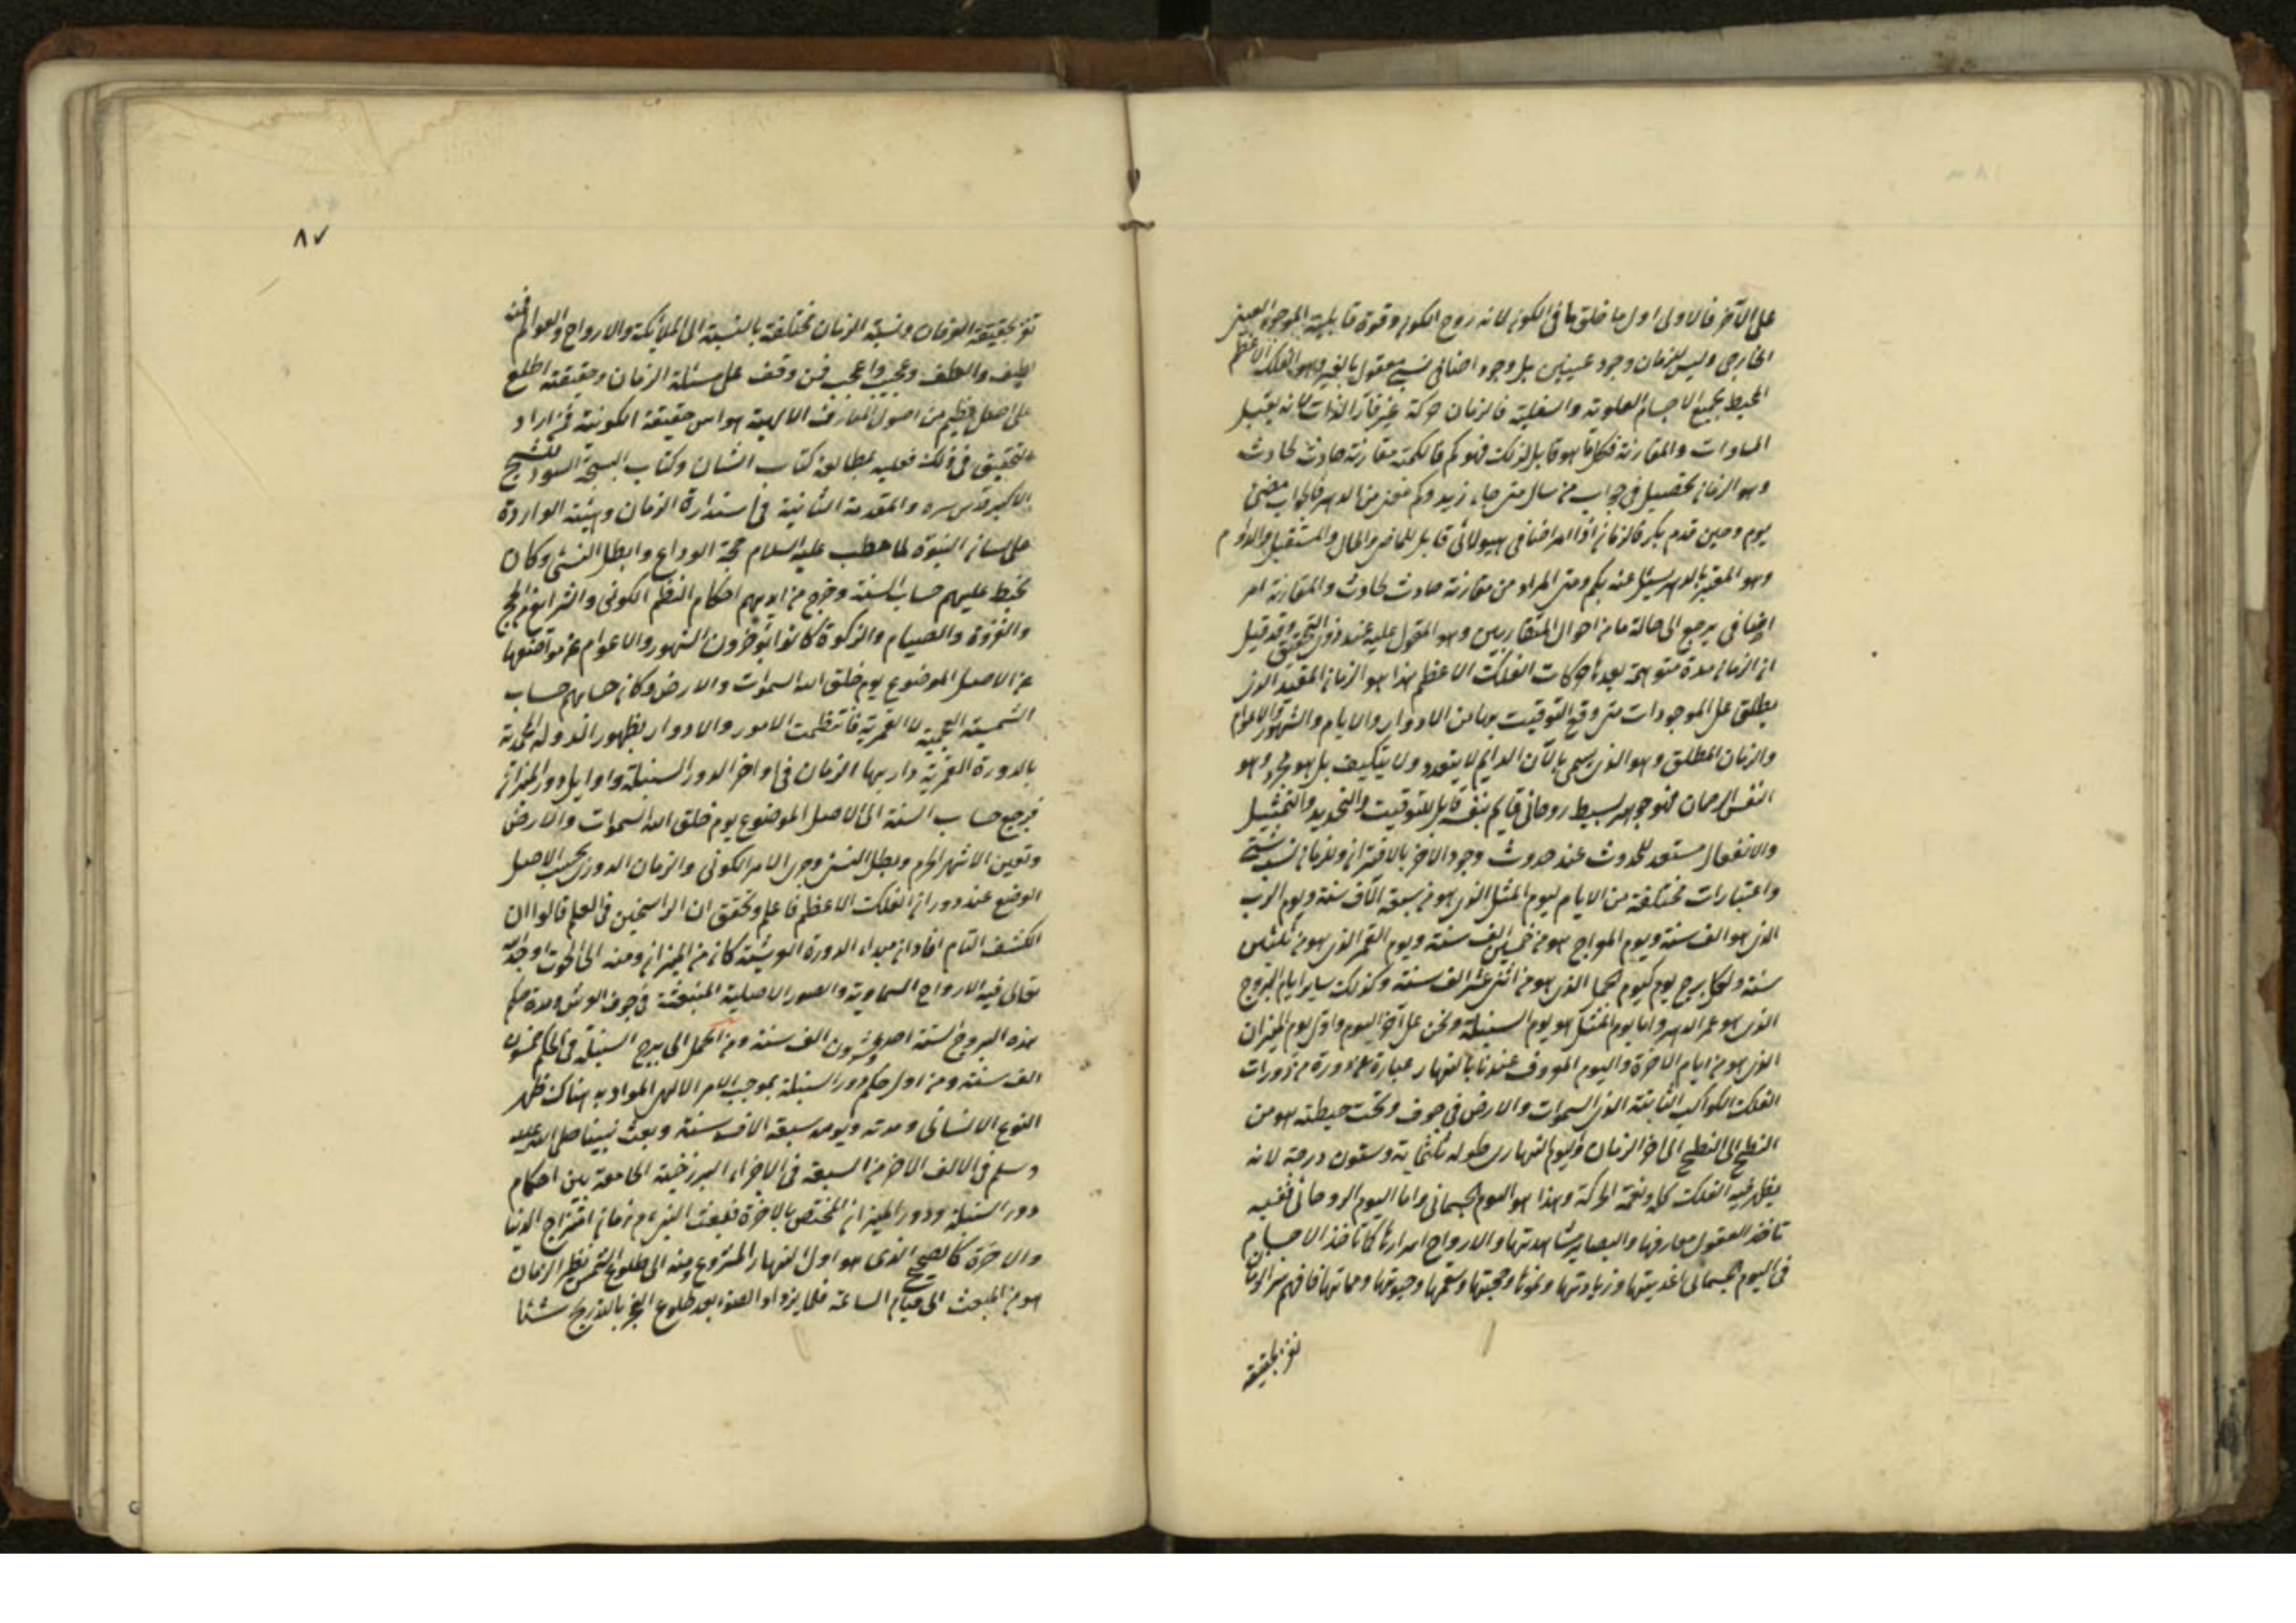 على الآخر فالاولى اول ما خلق ما فى الكون لانه روح الكون وقوة قابلية الموجود العينى
الخارجى وليس للزمان وجود عينى بل وجود اضافى نسبى معقول بالغير وهو الفلك الاعظم
المحيط بجميع الاجسام العلوية والسفلية فالزمان حركة غير قار الذات لانه يقبل
المساوات والمقارنة فكل ما هو قابل لذلك فهو كم فالكمية مقارنة حادث لحادث
وهو الزمان تحصيل فى جواب من سال متى جاء زيد وكم مضى من الدهر فالجواب مضى
يوم وحين قدم بكر فالزمان اذا امر اضافى هيولائى قابل للماضى والحال والمستقبل والدوام
وهو المعتبر بالدهر يسئل عنه بكم ومتى المراد من مقارنة حادث لحادث والمقارنة امر
اضافى يرجع الى حالة ما من احوال المتقاربين وهو المعول عليه عند ذوى التحقيق وقد قيل
ان الزمان مدة متوهمة بعدها حركات الفلك الاعظم هذا هو الزمان المقيد الذى
يطلق على الموجودات متى وقع التوقيت بها من الادوار والايام والشهور والاعوام
والزمان المطلق وهو الذى يسمى بالآن الدايم لا يتعدد ولا يتكيف بل هو مجرد وهو
النفس الرحمان فهو جوهر بسيط روحانى قايم بنفسه قابل للتوقيت والتحديد والتمثيل
والانفعال مستعد للحدوث عند حدوث وجود الآخر بالاقتران وللزمان نسب شتى
واعتبارات مختلفة من الايام ليوم المثل الذى هو من سبعة آلاف سنة ويوم الرب
الذى هو الف سنة ويوم المعراج هو من خمسين الف سنة ويوم القمر الذى هو من ثلثين
سنة ولكل برج يوم كيوم الحمل الذى هو من اثنى عشر الف سنة وكذلك ساير ايام البروج
الذى هو عمر الدهر واما يوم المثل هو يوم السنبلة ونحن على آخر اليوم واول يوم الميزان
الذى هو من ايام الآخرة واليوم المعروف عندنا بالنهار عبارة عن دورة من دورات
الفلك الكواكب الثابتة الذى السموات والارض فى جوف وتحت حيطته هو من
النطح الى النطح الى آخر الزمان واليوم النهارى طوله ثلثماية وستون درجة لانه
يظهر فيه الفلك كله وتعمه الحركة وهذا هو اليوم الجسمانى واما اليوم الروحانى ففيه
تاخذ العقول معارفها والبصاير مشاهدتها والارواح اسرارها كما تاخذ الاجسام
فى اليوم الجسمانى اغذيتها وزيادتها ونموها وصحتها وسقمها وحيوتها ومماتها فافهم سر الزمان
تفز بحقيقة
٨٧
تفز بحقيقة العرفان ونسبة الزمان مختلفة بالنسبة الى الملائكة والارواح والعوالم فمنه
لطيف والطف وعجيب واعجب فمن وقف على مسئلة الزمان وحقيقته اطلع
على اصل عظيم من اصول المعارف الالهية هو اس حقيقة الكونية فمن اراد
التحقيق فى ذلك فعليه بمطالعة كتاب الشان وكتاب السبحة السوداء للشيخ
الاكبر قدس سره والمقدمة الثانية فى استدارة الزمان وهيئته الواردة
على لسان النبوة لما خطب عليه السلام حجة الوداع وابطل النسئ وكان
تخبط عليهم حساب السنة وخرج من ايديهم احكام النظم الكونى والشرايع من الحج
والغزوة والصيام والزكوة كانوا يؤخرون الشهور والاعوام عن مواضعها
عن الاصل الموضوع يوم خلق الله السموات والارض وكان حسابهم حساب
الشمسية العجمية لا القمرية فانتظمت الامور والادوار بظهور الدولة المحمدية
بالدورة القمرية دار بها الزمان فى اواخر الدور السنبلة واوايل دور الميزان
فرجع حساب السنة الى الاصل الموضوع يوم خلق الله السموات والارض
وتعين الاشهر الحرم وبطل النسئ وجرى الامر الكونى والزمان الدورى بحسب الاصل
الوضع عند دوران الفلك الاعظم فاعلم وتحقق ان الراسخين فى العلم قالوا ان
الكشف التام افاد ان مبداء الدورة العرشية كان من الميزان ومنه الى الحوت اوجد الله
تعالى فيه الارواح السماوية والصور الاصلية المنبعثة فى جوف العرش ومدة حكم
هذه البروج الستة احد وعشرون الف سنة ومن الحمل الى برج السنبلة فى الحكم خمسون
الف سنة ومن اول حكم دور السنبلة بموجب الامر الالهى المواد به هناك ظهر
النوع الانسانى ومدته ويومه سبعة الاف سنة وبعث نبينا صلى الله عليه
وسلم فى الالف الآخر من السبعة فى الاجزاء البرزخية الجامعة بين احكام
دور السنبلة ودور الميزان المختص بالآخرة فبعث النبى ع م زمان امتزاج الدنيا
والآخرة كالصبح الذى هو اول النهار المشروع ومنه الى طلوع الشمس نظير الزمان
هو من المبعث الى قيام الساعة فلما يزداد الضوء بعد طلوع الفجر بالتدريج شيئا